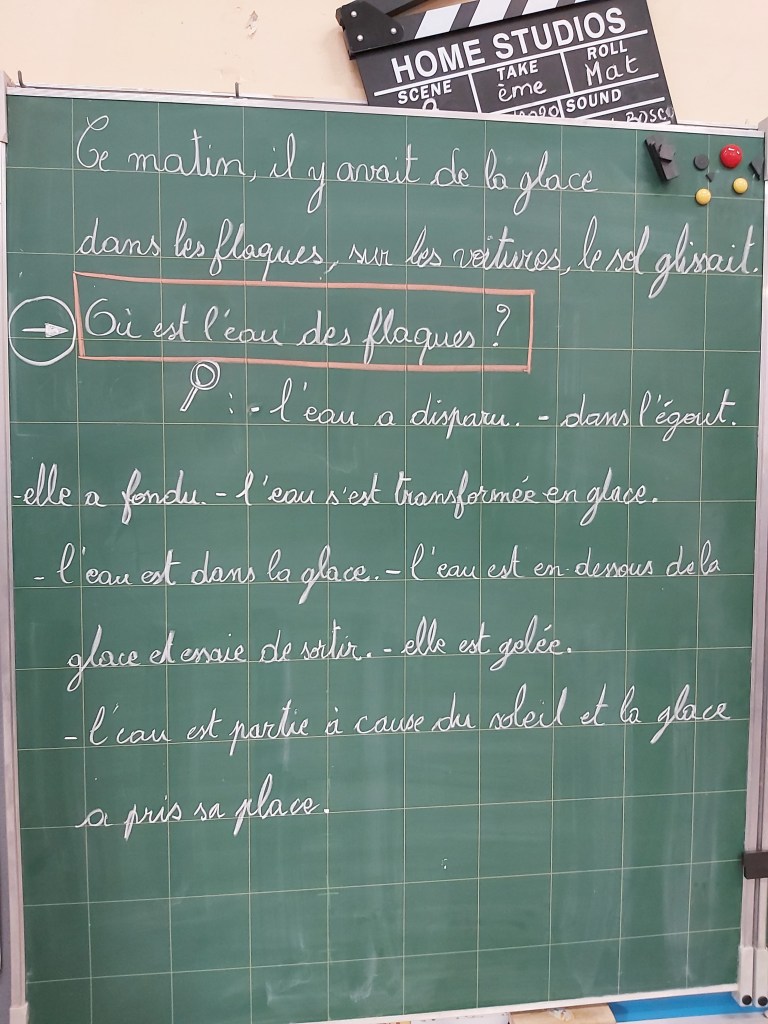 HOME STUDIOS
SCENE TAKE ROLL
ème Mat
SOUND
Ce matin, il y avait de la glace
dans les flaques, sur les voitures, le sol glissait.
Où est l'eau des flaques ?
: - l'eau a disparu. - dans l'égout.
- elle a fondu. - l'eau s'est transformée en glace.
- l'eau est dans la glace. - l'eau est en-dessous de la
glace et essaie de sortir. - elle est gelée.
- l'eau est partie à cause du soleil et la glace
a pris sa place.